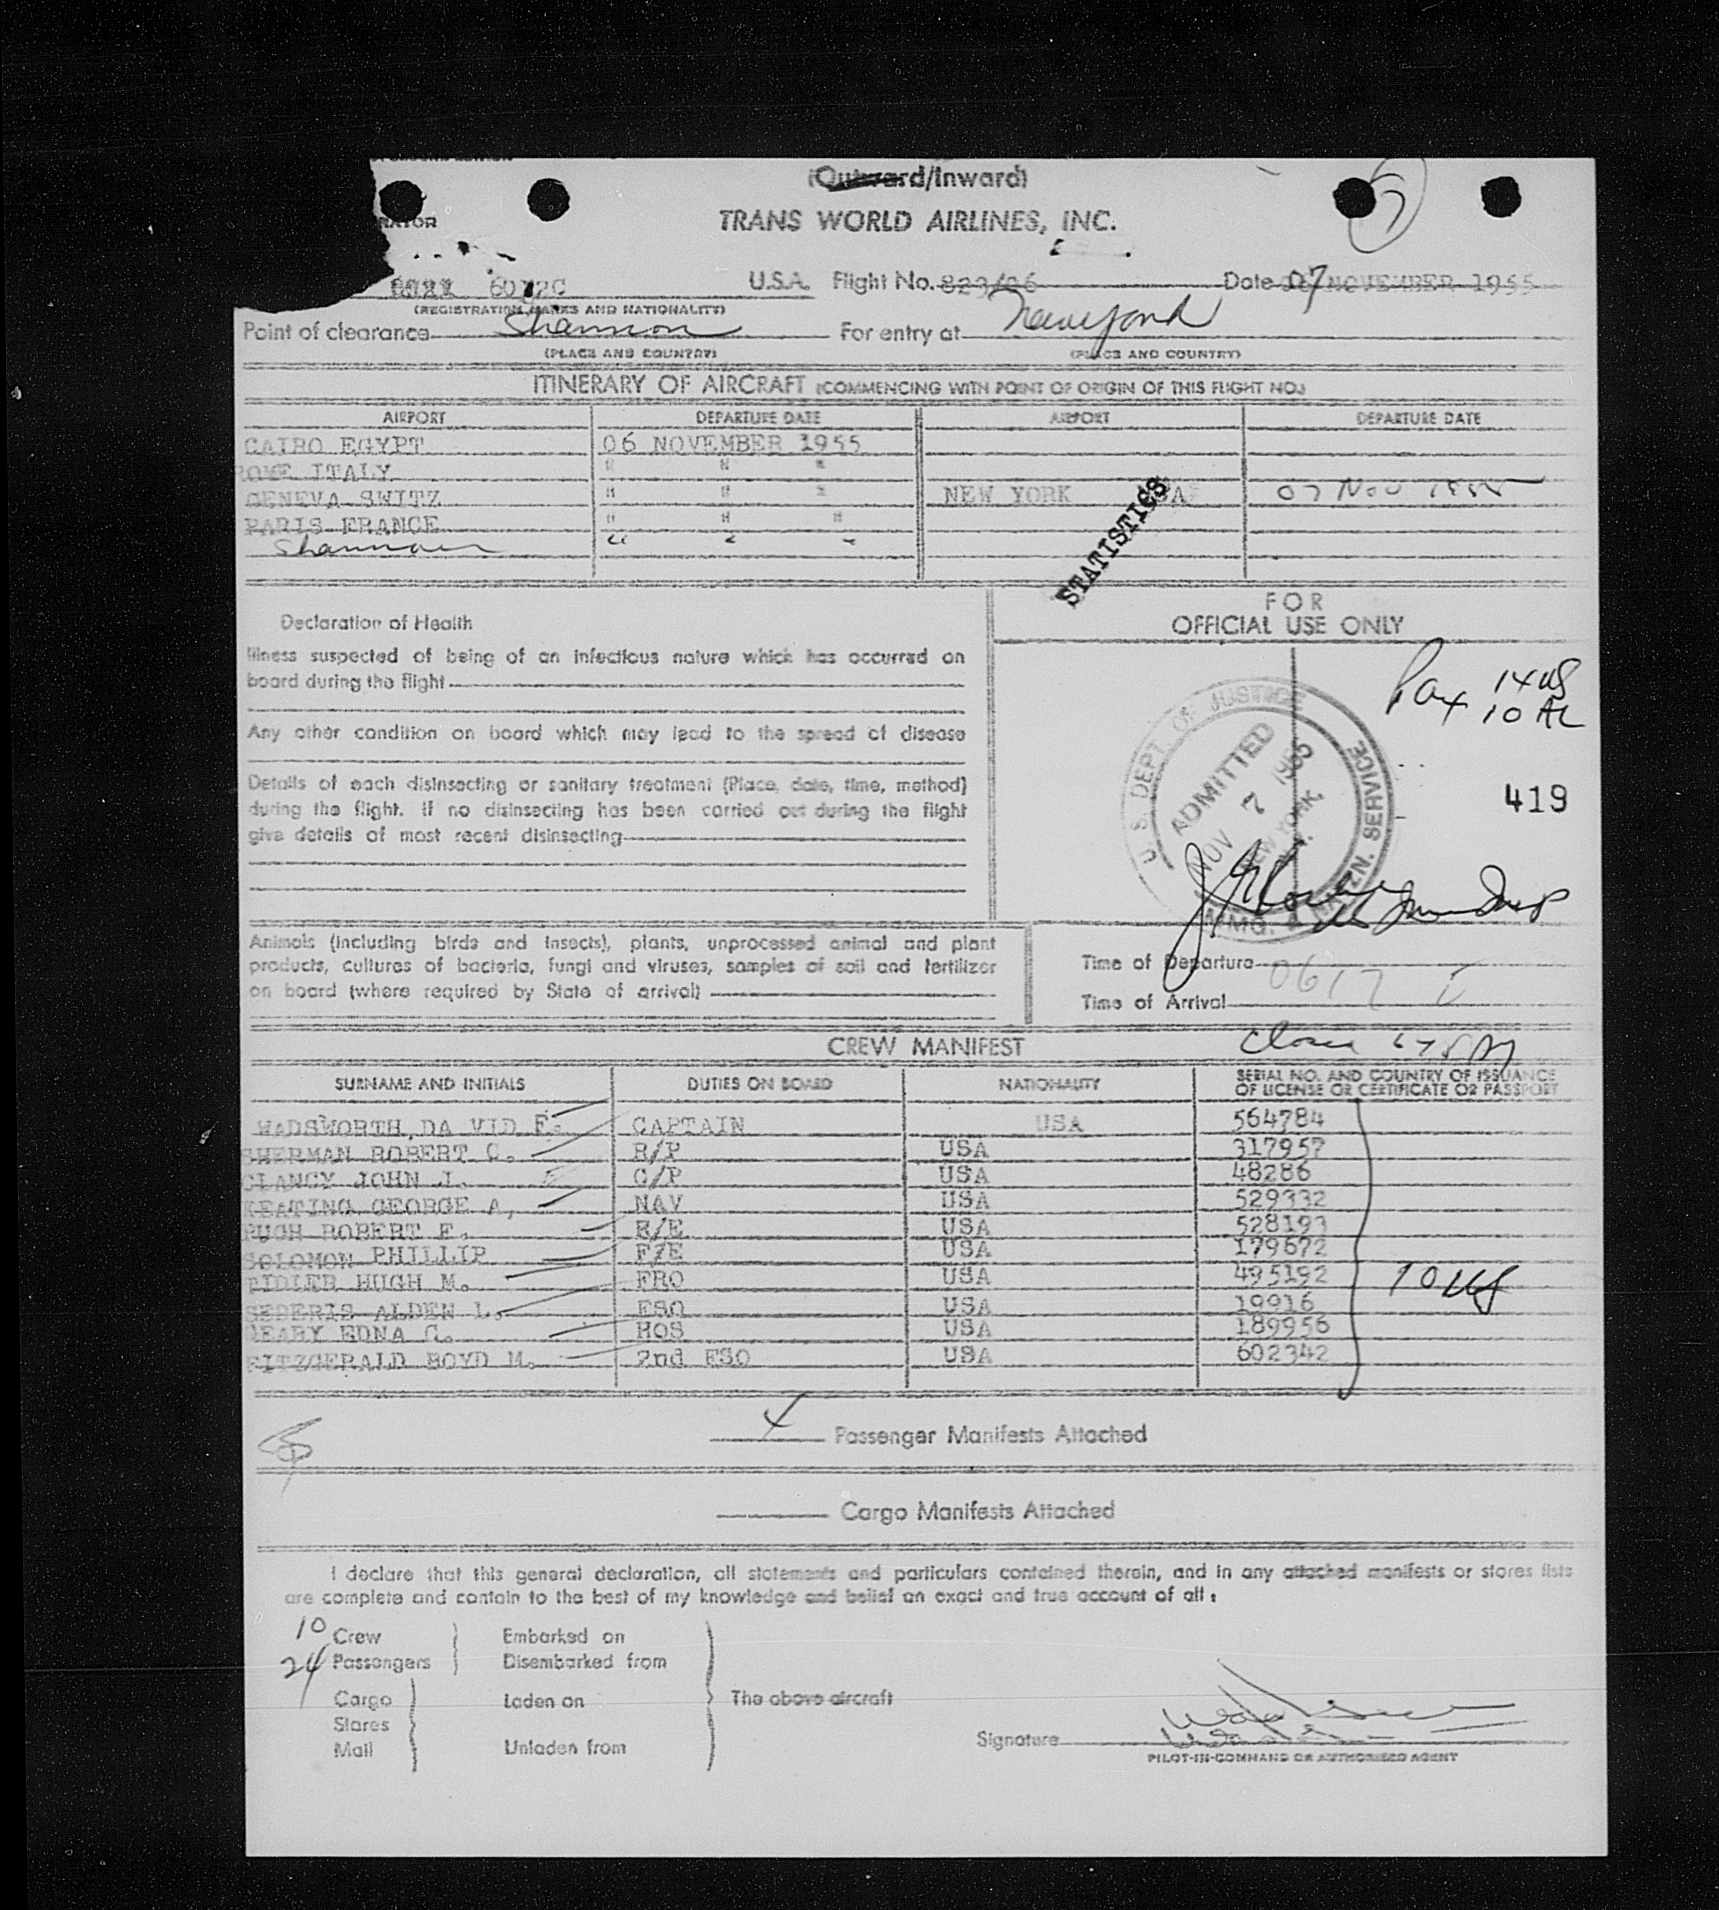 (Outward/Inward)
TRANS WORLD AIRLINES, INC.
U.S.A. Flight No. 823/06 Date 07 NOVEMBER 1955
(REGISTRATION MARKS AND NATIONALITY)
Point of clearance Shannon For entry at New York
(PLACE AND COUNTRY) (PLACE AND COUNTRY)
ITINERARY OF AIRCRAFT (COMMENCING WITH POINT OF ORIGIN OF THIS FLIGHT NO.)
AIRPORT DEPARTURE DATE AIRPORT DEPARTURE DATE
CAIRO EGYPT 06 NOVEMBER 1955
ROME ITALY " " "
GENEVA SWITZ " " " NEW YORK 07 Nov 1955
PARIS FRANCE " " "
Shannon " " "
STATISTICS
FOR
OFFICIAL USE ONLY
Declaration of Health
Illness suspected of being of an infectious nature which has occurred on
board during the flight
Any other condition on board which may lead to the spread of disease
Details of each disinsecting or sanitary treatment (Place, date, time, method)
during the flight. If no disinsecting has been carried out during the flight
give details of most recent disinsecting
Pax 14 US
10 AL
419
U. S. DEPT. OF JUSTICE
ADMITTED
NOV 7 1955
NEW YORK, N.Y.
IMMG. & NATZN. SERVICE
Animals (including birds and insects), plants, unprocessed animal and plant
products, cultures of bacteria, fungi and viruses, samples of soil and fertilizer
on board (where required by State of arrival)
Time of Departure 0617
Time of Arrival
CREW MANIFEST
SURNAME AND INITIALS DUTIES ON BOARD NATIONALITY SERIAL NO. AND COUNTRY OF ISSUANCE
OF LICENSE OR CERTIFICATE OR PASSPORT
WADSWORTH, DA VID F. CAPTAIN USA 564784
SHERMAN ROBERT C. R/P USA 317957
CLANCY JOHN J. C/P USA 48286
KEATING GEORGE A, NAV USA 529332
PUGH ROBERT F. F/E USA 528193
SOLOMON PHILLIP F/E USA 179672
HUGH M. FRO USA 495192
SEDERIS ALDEN L. FSO USA 19916
EDNA C. HOS USA 189956
FITZGERALD BOYD M. 2nd FSO USA 602342
10 US
4 Passenger Manifests Attached
Cargo Manifests Attached
I declare that this general declaration, all statements and particulars contained therein, and in any attached manifests or stores lists
are complete and contain to the best of my knowledge and belief an exact and true account of all:
10 Crew Embarked on
24 Passengers Disembarked from
Cargo Laden on The above aircraft
Stores
Mail Unladen from
Signature
PILOT-IN-COMMAND OR AUTHORIZED AGENT